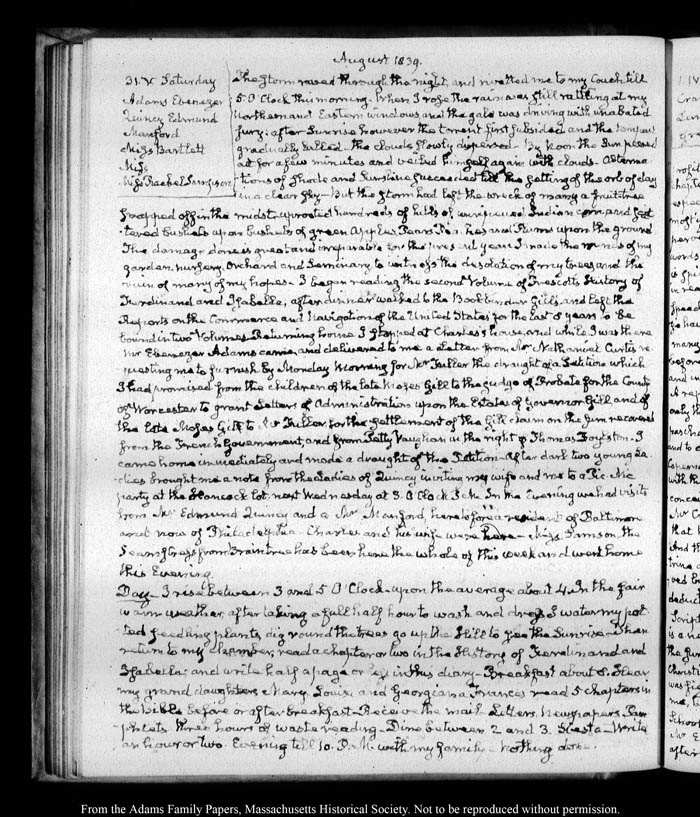 August 1839.
31. V. Saturday
Adams Ebenezer
Quincy Edmund
Manford
Miss Bartlett
Miss
Miss Rachel Samson
The Storm raved through the night, and rivetted me to my Couch till
5 O'Clock this morning. When I rose the rain was still rattling at my
Northern and Eastern windows and the gale was driving with unabated
fury: after Sunrise however the torrent first subsided and the tempest
gradually lulled. The clouds slowly dispersed. By Noon the Sun peeped
out for a few minutes and veiled himself again with clouds. Alterna
tions of Shade and Sunshine succeeded till the setting of the orb of day
in a clear sky. But the storm had left the wreck of many a fruit tree
snapped off in the midst, uprooted hundreds of hills of unripened Indian corn and scat
tered bushels upon bushels of green Apples Pears Peaches and Plums upon the ground
The damage done is great and irreparable for the present year. I made the rounds of my
garden, nursery, Orchard and Seminary to witness the desolation of my trees and the
ruin of many of my hopes. I began reading the second Volume of Prescott's History of
Ferdinand and Isabella, after dinner walked to the Bookbinder Gill's and left the
Reports on the Commerce and Navigation of the United States for the last 8 years to be
bound in two Volumes. Returning home I stopped at Charles's house, and while I was there
Mr Ebenezer Adams came, and delivered to me a Letter from Mr Nathaniel Curtis re
questing me to furnish by Monday Morning for Mr Fuller the draught of a Petition which
I had promised from the children of the late Moses Gill to the judge of Probate for the County
of Worcester to grant Letters of Administration upon the Estates of Governor Gill and of
the late Moses Gill to Mr Fuller, for the settlement of the Gill claim on the sum recovered
from the French Government, and from Petty Vaughan in the right of Thomas Boylston. I
came home immediately and made a draught of the Petition. After dark two young La
dies brought me a note from the Ladies of Quincy inviting my wife and me to a Pic Nic
party at the Hancock lot next Wednesday at 3. O'Clock P.M. In the Evening we had visits
from Mr Edmund Quincy and a Mr Manford, heretofore a resident of Baltimore
and now of Philadelphia. Charles and his wife were here. Miss Samson, the
Seamstress from Braintree has been here the whole of this week and went home
this Evening.
Day. I rise between 3 and 5 O'Clock upon the average about 4. In the fair
warm weather, after taking a full half hour to wash and dress I water my pot
ted seedling plants, dig round the trees go up the Hill to see the Sunrise. Then
return to my chamber, read a chapter or two in the History of Ferdinand and
Isabella; and write half a page or less in this diary. Breakfast about 8. Hear
my grand daughters Mary Louisa and Georgiana Frances read 5 chapters in
the Bible before or after breakfast. Receive the mail. Letters, Newspapers, Pam
phlets three hours of waste reading. Dine between 2 and 3. Siesta. Write
an hour or two. Evening till 10. P.M. with my family. Nothing done.
From the Adams Family Papers, Massachusetts Historical Society. Not to be reproduced without permission.